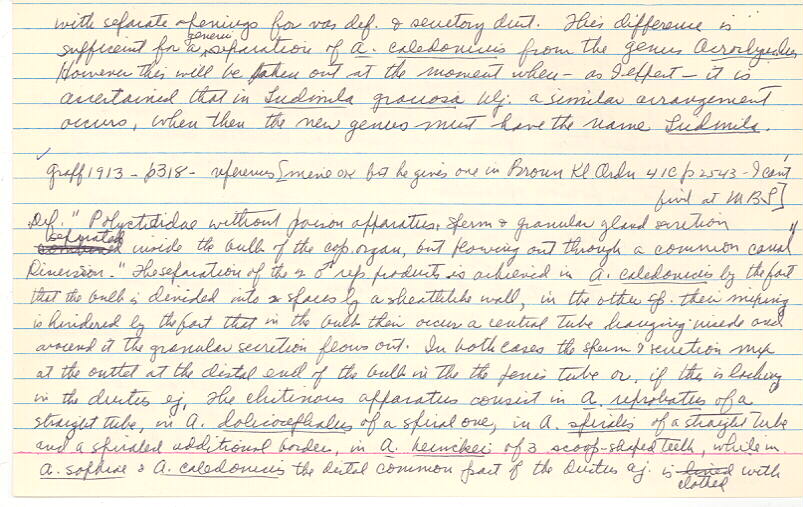 with separate openings for vas def. & secretory duct. This difference is
sufficient for a generic separation of A. caledonicus from the genus Acrorhynchus
However this will be taken out at the moment when - as I expect - it is
ascertained that in Ludmila graciosa Ulj. a similar arrangement
occurs, when then the new genus must have the name Ludmila.
✓ Graff 1913 - p318 - references [mine ox but he gives one in Bronn Kl Ordn 4 1C p2543 - I can't
find at MBL]
Def. "Polycystididae without poison apparatus, sperm & granular gland secretion
separated inside the bulb of the cop. organ, but flowing out through a common canal"
Discussion. "The separation of the 2 ♂ rep. products is achieved in A. caledonicus by the fact
that the bulb is divided into 2 spaces by a sheathlike wall, in the other sp. their mixing
is hindered by the fact that in the bulb their occurs a central tube hanging inside and
around it the granular secretion flows out. In both cases the sperm & secretion mix
at the outlet at the distal end of the bulb in the the penis tube or, if this is lacking
in the ductus ej. The chitinous apparatus consist in A. reprobatus of a
straight tube, in A. dolicocephalus of a spiral one, in A. spiralis of a straight tube
and a spiraled additional border, in A. heinckei of 3 scoop-shaped teeth, while in
A. sophiae & A. caledonicus the distal common part of the ductus ej. is lined clothed with